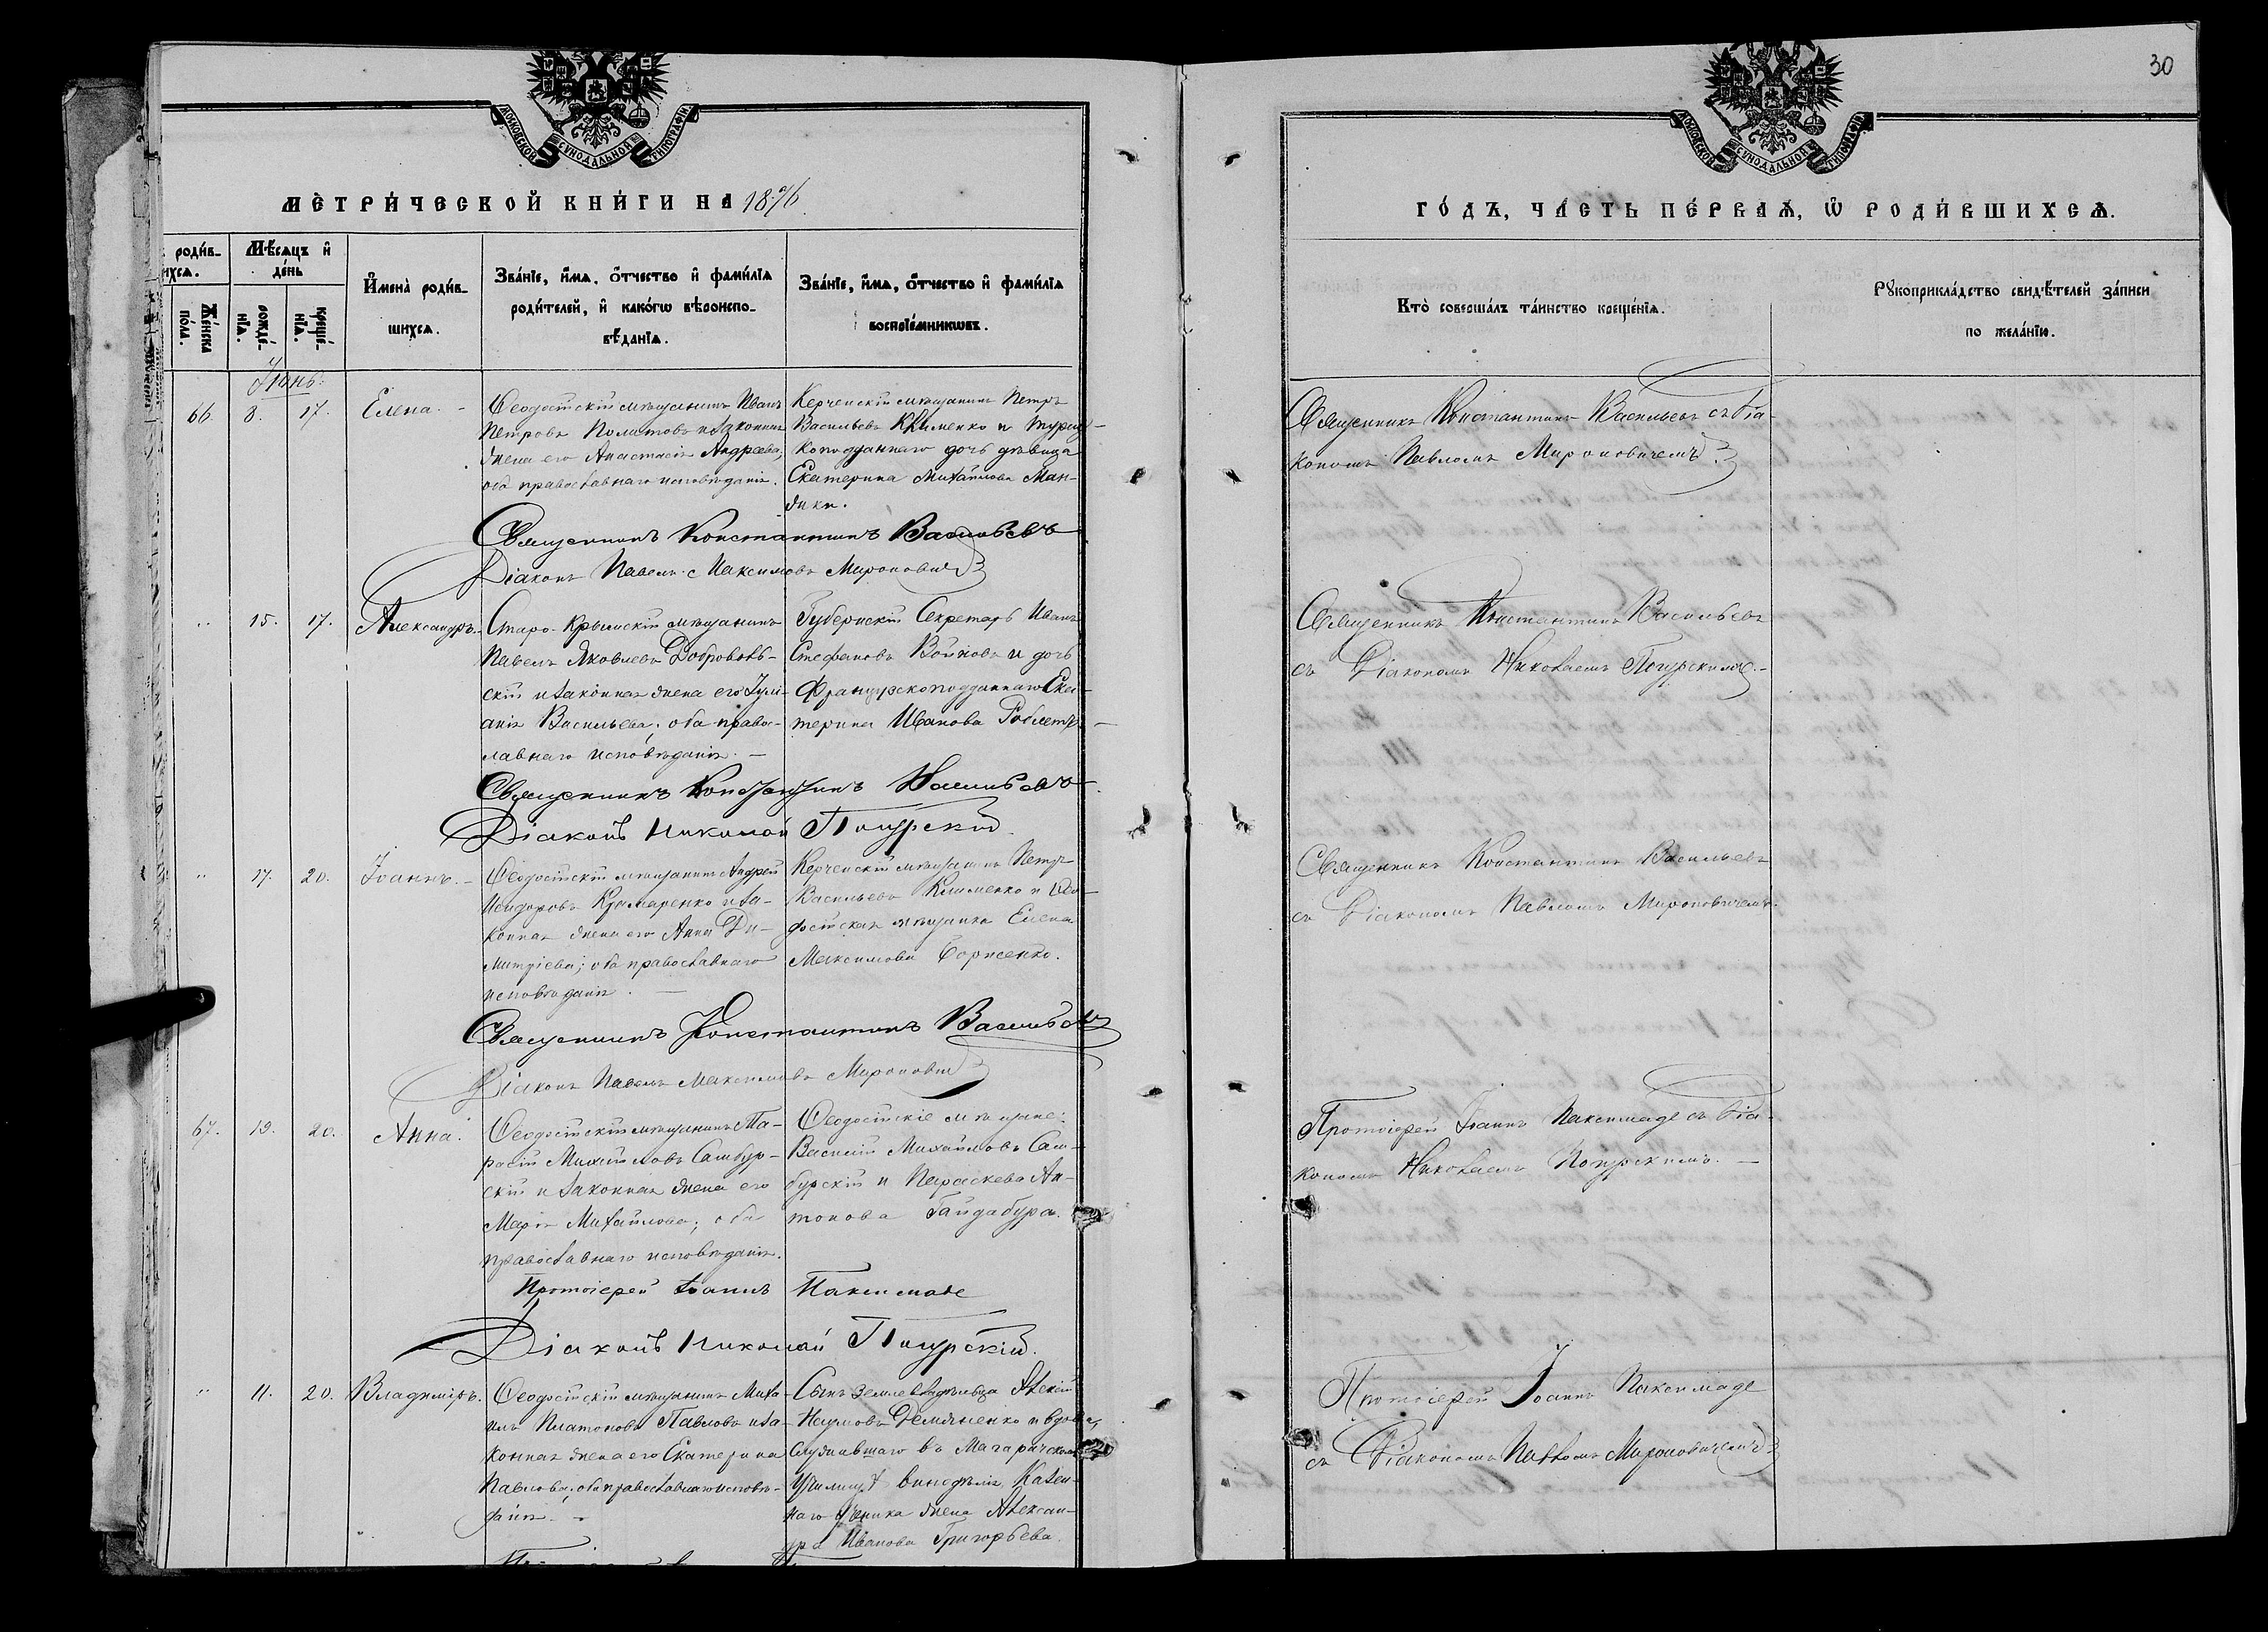 30
МОСКОВСКОЙ СѴНОДАЛЬНОЙ ТИПОГРАФІИ
МОСКОВСКОЙ СѴНОДАЛЬНОЙ ТИПОГРАФІИ
МЕТРИЧЕСКОЙ КНИГИ НА 1876
ГОДЪ, ЧАСТЬ ПЕРВАЯ, Ѡ РОДИВШИХСЯ.
родив-
ихся.
Женска
пола.
Мѣсяцъ и
день
рожде-
нія.
креще-
нія.
Имена родив-
шихся.
Званіе, имя, отчество и фамилія
родителей, и какогѡ вѣроиспо-
вѣданія.
Званіе, имя, отчество и фамилія
воспріемниковъ.
Кто совершалъ таинство крещенія.
Рукоприкладство свидѣтелей записи
по желанію.
Іюнь.
66. 8. 17. Елена.
Ѳеодосійскій мѣщанинъ Иванъ
Петровъ и законная
жена его Анастасія Андреева,
оба православнаго исповѣданія.
Керченскій мѣщанинъ Петръ
Васильевъ Клименко и Турец-
коподданнаго дочь дѣвица
Екатерина Михайлова Ман-
жики.
Священникъ Константинъ Васильевъ съ Діа-
кономъ Павломъ Мироновичемъ
Священникъ Константинъ Васильевъ
Діаконъ Павелъ Максимовъ Мироновичъ
" 15. 17. Александръ.
Старо-Крымскій мѣщанинъ
Павелъ Яковлевъ Доброволь-
скій и законная жена его Іулі-
анія Васильева, оба право-
лавнаго исповѣданія. —
Губернскій Секретарь Иванъ
Стефановъ Войновъ и дочь
Французскоподданнаго Ека-
терина Иванова
Священникъ Константинъ Васильевъ
съ Діакономъ Николаемъ Погурскимъ. —
Священникъ Константинъ Васильевъ
Діаконъ Николай Погурскій
" 17. 20. Іоаннъ. —
Ѳеодосійскій мѣщанинъ Андрей
Исидоровъ Крамаренко и за-
конная жена его Анна Ди-
митріева; оба православнаго
исповѣданія. —
Керченскій мѣщанинъ Петръ
Васильевъ Клименко и Ѳео-
досійская мѣщанка Елена
Максимова Борисенко.
Священникъ Константинъ Васильевъ
съ Діакономъ Павломъ Мироновичемъ.
Священникъ Константинъ Васильевъ
Діаконъ Павелъ Максимовъ Мироновичъ
67. 19. 20. Анна.
Ѳеодосійскій мѣщанинъ Та-
расій Михайловъ Самбур-
скій и законная жена его
Марія Михайлова; оба
православнаго исповѣданія.
Ѳеодосійскіе мѣщане:
Василій Михайловъ Сам-
бурскій и Параскева Ан-
тонова Гайдабура.
Протоіерей Іоаннъ Паксимаде съ Діа-
кономъ Николаемъ Погурскимъ. —
Протоіерей Іоаннъ Паксимаде
Діаконъ Николай Погурскій.
" 11. 20. Владиміръ.
Ѳеодосійскій мѣщанинъ Миха-
илъ Платоновъ Павловъ и за-
конная жена его Екатерина
Павлова; оба православнаго исповѣ-
данія. —
Сынъ землевладѣльца Алексій
Наумовъ Демьяненко и
Служившаго въ Магарачскомъ
Училищѣ винодѣлія, Казен-
наго ученика жена Алексан-
дра Иванова Григорьева.
Протоіерей Іоаннъ Паксимаде
съ Діакономъ Павломъ Мироновичемъ